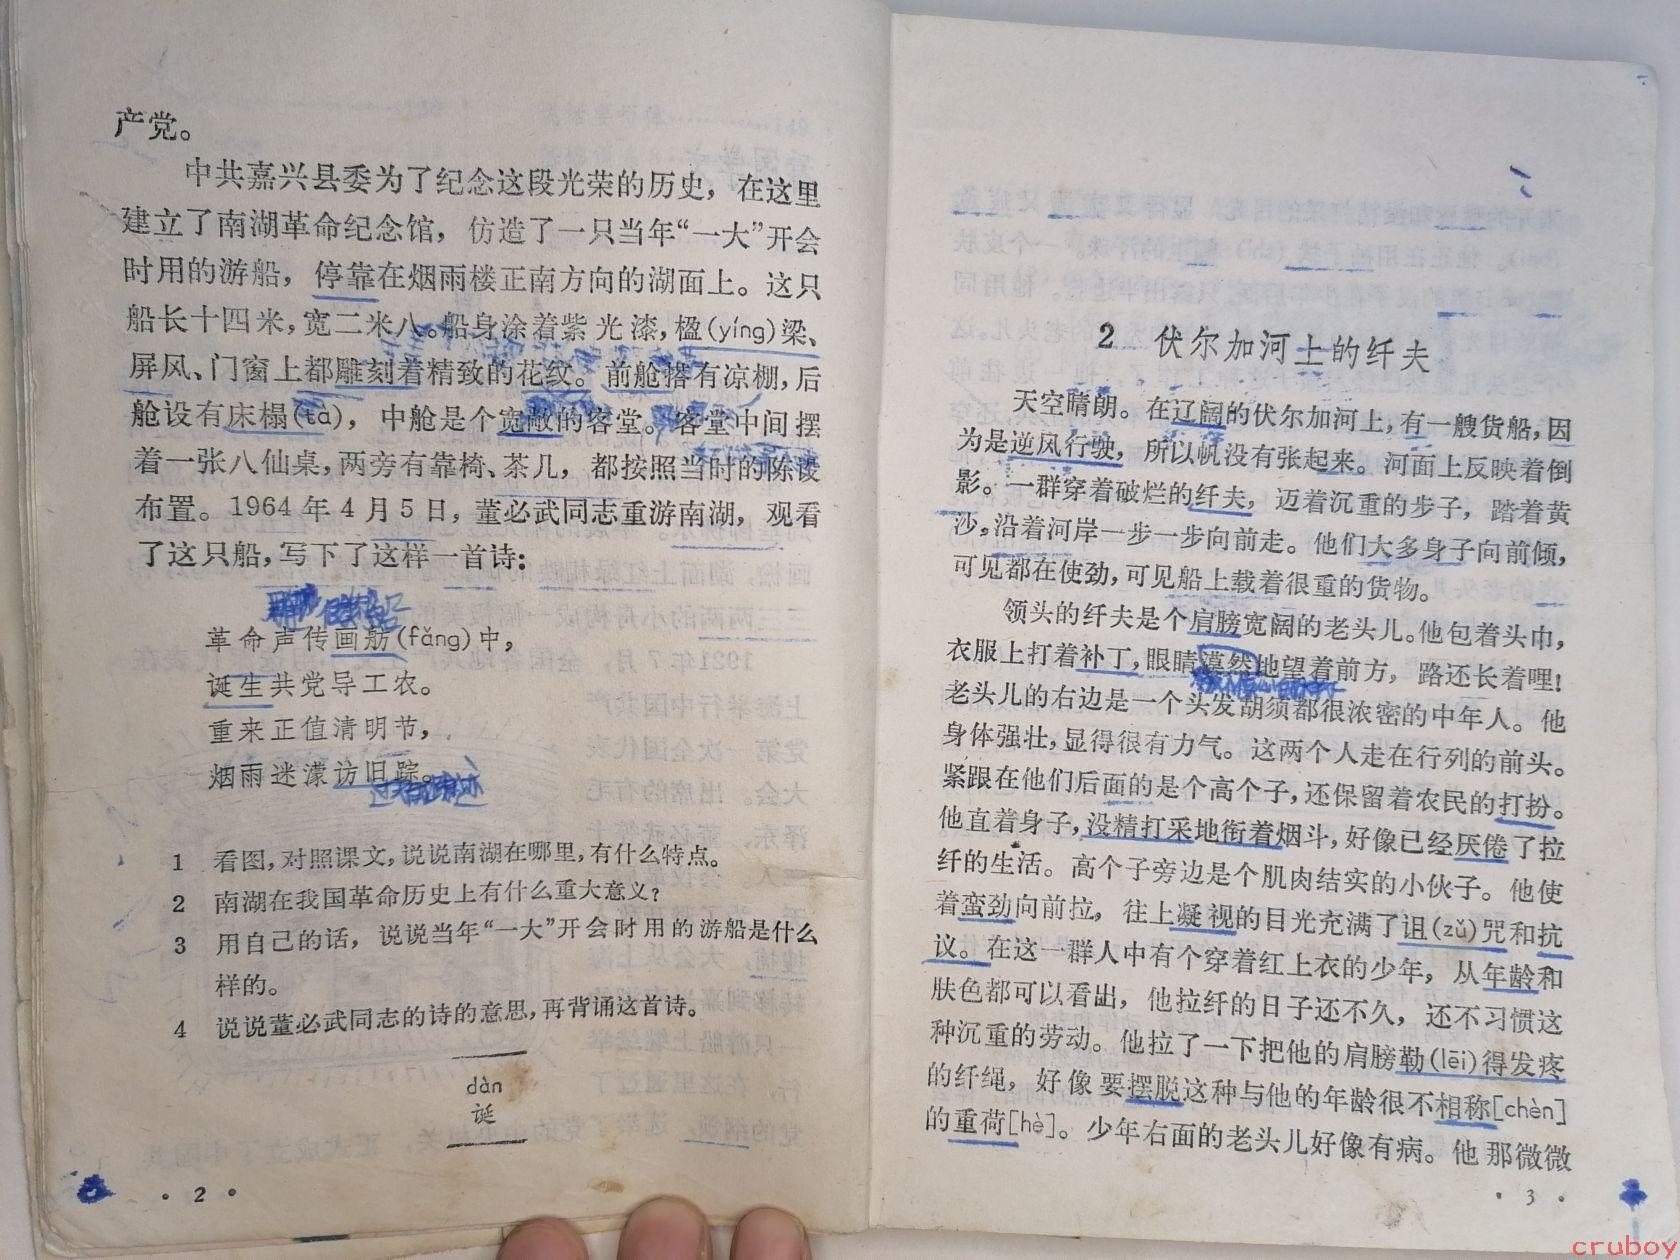 产党。
中共嘉兴县委为了纪念这段光荣的历史，在这里
建立了南湖革命纪念馆，仿造了一只当年“一大”开会
时用的游船，停靠在烟雨楼正南方向的湖面上。这只
船长十四米，宽二米八。船身涂着紫光漆，楹(yíng)梁、
屏风、门窗上都雕刻着精致的花纹。前舱搭有凉棚，后
舱设有床榻(tà)，中舱是个宽敞的客堂。客堂中间摆
着一张八仙桌，两旁有靠椅、茶几，都按照当时的陈设
布置。1964年4月5日，董必武同志重游南湖，观看
了这只船，写下了这样一首诗：
革命声传画舫(fǎng)中，
诞生共党导工农。
重来正值清明节，
烟雨迷濛访旧踪。
1 看图，对照课文，说说南湖在哪里，有什么特点。
2 南湖在我国革命历史上有什么重大意义？
3 用自己的话，说说当年“一大”开会时用的游船是什么
样的。
4 说说董必武同志的诗的意思，再背诵这首诗。
dàn
诞
·2·
2 伏尔加河上的纤夫
天空晴朗。在辽阔的伏尔加河上，有一艘货船，因
为是逆风行驶，所以帆没有张起来。河面上反映着倒
影。一群穿着破烂的纤夫，迈着沉重的步子，踏着黄
沙，沿着河岸一步一步向前走。他们大多身子向前倾，
可见都在使劲，可见船上载着很重的货物。
领头的纤夫是个肩膀宽阔的老头儿。他包着头巾，
衣服上打着补丁，眼睛漠然地望着前方，路还长着哩！
老头儿的右边是一个头发胡须都很浓密的中年人。他
身体强壮，显得很有力气。这两个人走在行列的前头。
紧跟在他们后面的是个高个子，还保留着农民的打扮。
他直着身子，没精打采地衔着烟斗，好像已经厌倦了拉
纤的生活。高个子旁边是个肌肉结实的小伙子。他使
着蛮劲向前拉，往上凝视的目光充满了诅(zǔ)咒和抗
议。在这一群人中有个穿着红上衣的少年，从年龄和
肤色都可以看出，他拉纤的日子还不久，还不习惯这
种沉重的劳动。他拉了一下把他的肩膀勒(lēi)得发疼
的纤绳，好像要摆脱这种与他的年龄很不相称[chèn]
的重荷[hè]。少年右面的老头儿好像有病。他那微微
·3·
cruboy